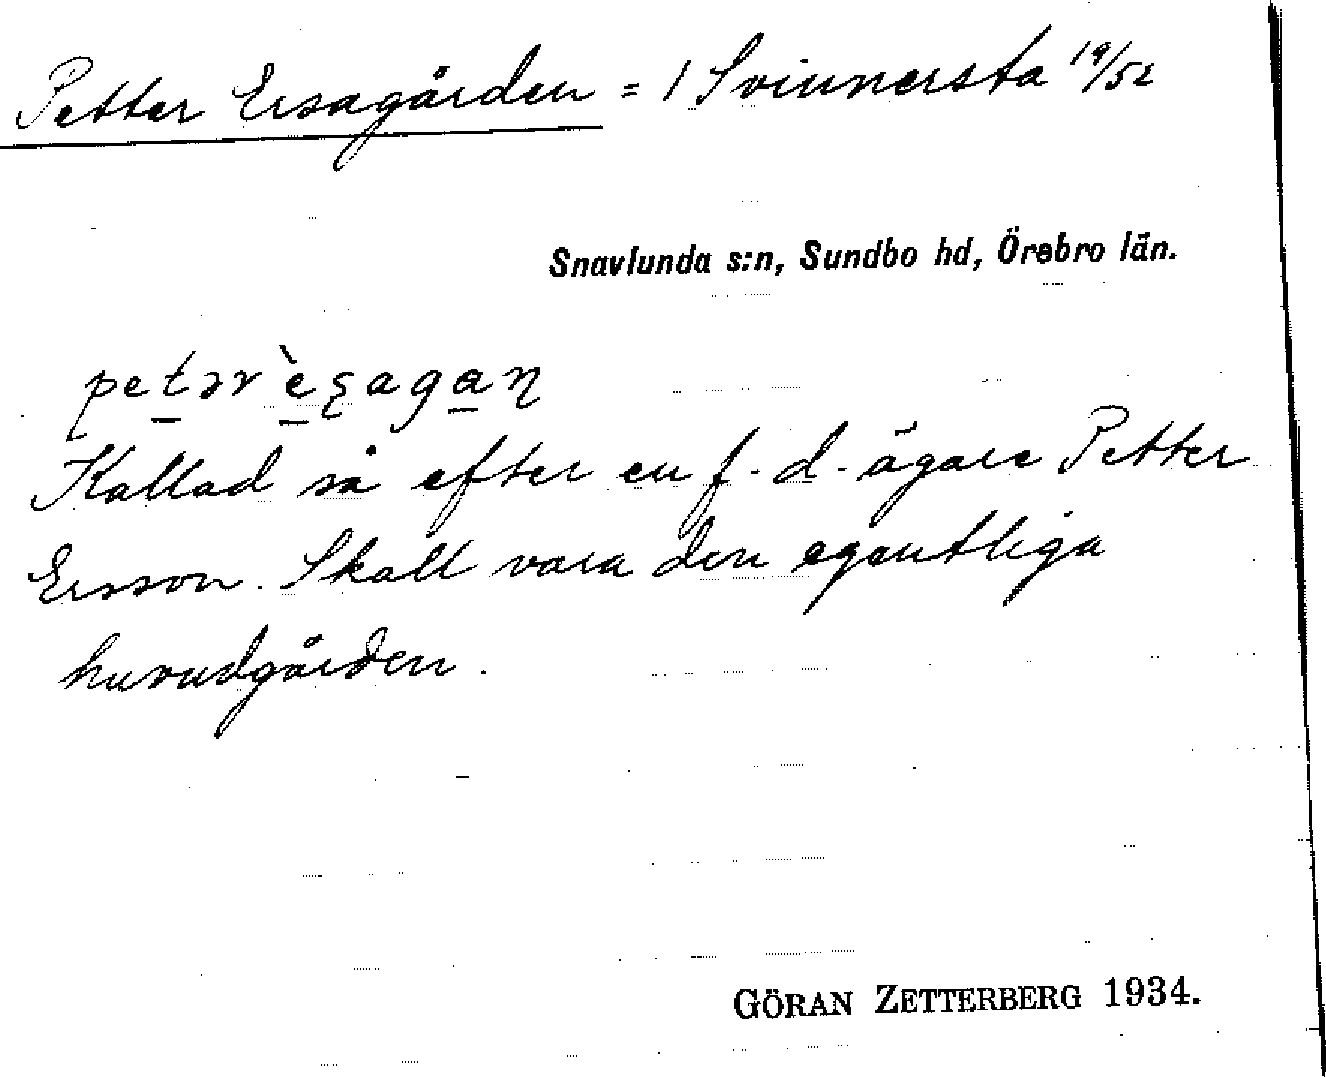 Petter Ersagården = 1 Svinnersta 19/52
Snavlunda s:n, Sundbo hd, Örebro län.
petər èʂagaɳ
Kallad så efter en f.d. ägare Petter
Ersson. Skall vara den egentliga
huvudgården.
GÖRAN ZETTERBERG 1934.